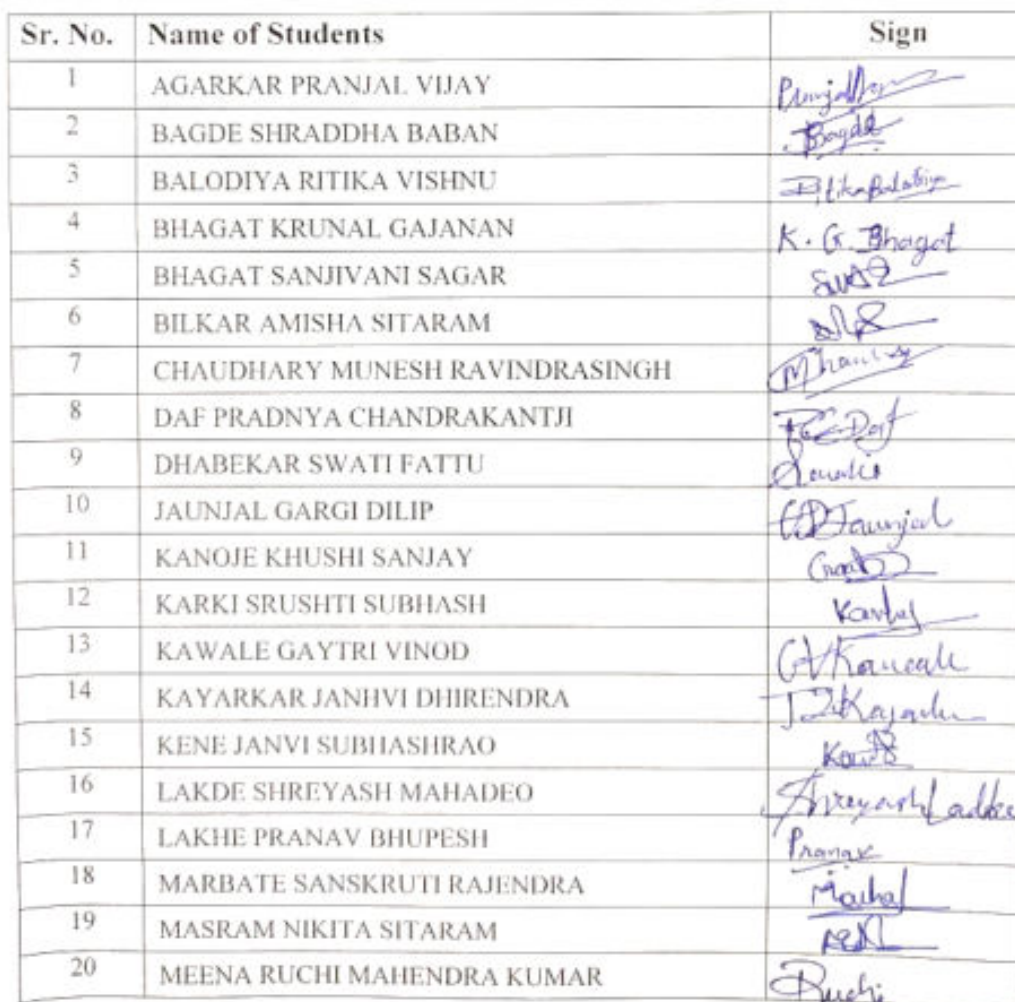 Sr. No. Name of Students Sign
1 AGARKAR PRANJAL VIJAY
2 BAGDE SHRADDHA BABAN Bagde
3 BALODIYA RITIKA VISHNU Ritika Balodiya
4 BHAGAT KRUNAL GAJANAN K. G. Bhagat
5 BHAGAT SANJIVANI SAGAR
6 BILKAR AMISHA SITARAM
7 CHAUDHARY MUNESH RAVINDRASINGH
8 DAF PRADNYA CHANDRAKANTJI P.C. Daf
9 DHABEKAR SWATI FATTU
10 JAUNJAL GARGI DILIP GDJaunjal
11 KANOJE KHUSHI SANJAY
12 KARKI SRUSHTI SUBHASH
13 KAWALE GAYTRI VINOD GVKawale
14 KAYARKAR JANHVI DHIRENDRA
15 KENE JANVI SUBHASHRAO
16 LAKDE SHREYASH MAHADEO Shreyash Lakde
17 LAKHE PRANAV BHUPESH Pranav
18 MARBATE SANSKRUTI RAJENDRA
19 MASRAM NIKITA SITARAM
20 MEENA RUCHI MAHENDRA KUMAR Ruchi